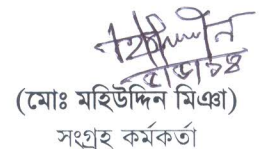 (মোঃ মহিউদ্দিন মিঞা)
সংগ্রহ কর্মকর্তা